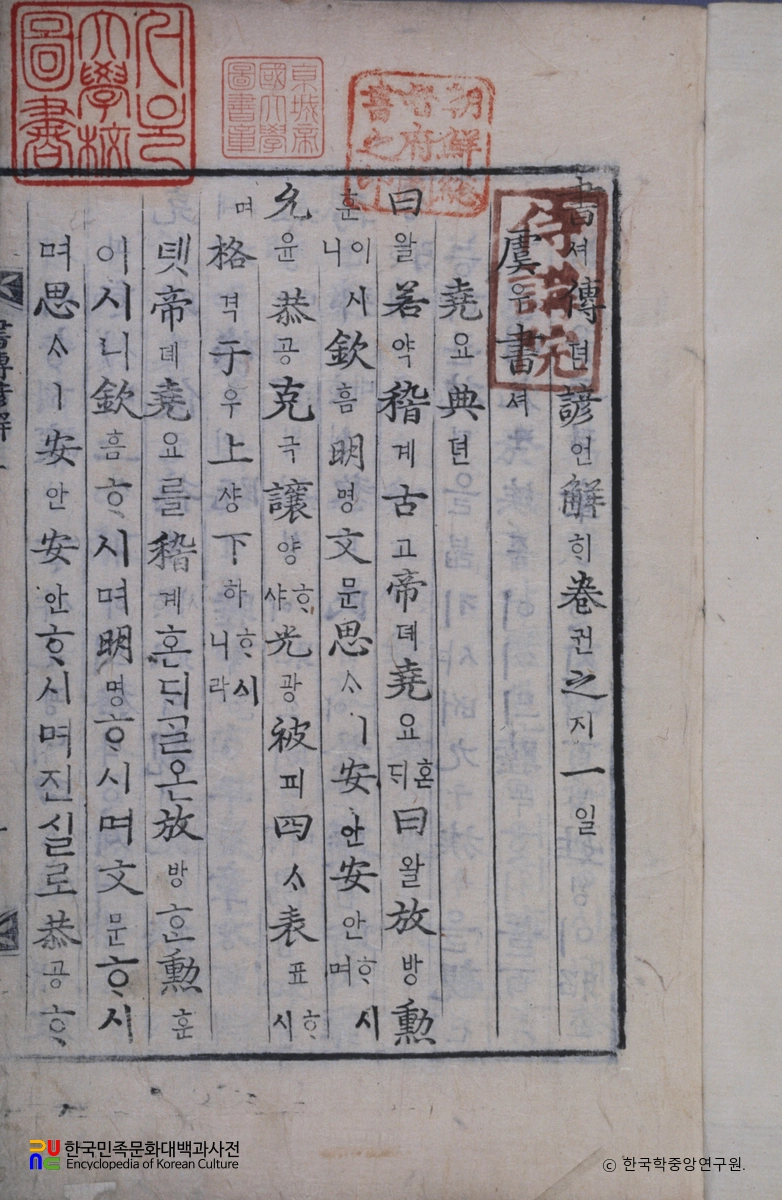 서울大學校圖書
京城帝國大學圖書章
朝鮮總督府圖書之印
侍講院
書셔傳뎐諺언解ᄒᆡ卷권之지一일
虞우書셔
堯요典뎐
曰왈若약稽계古고帝뎨堯요혼ᄃᆡ曰왈放방勳
훈이시니欽흠明명文문思ᄉᆞㅣ安안安안ᄒᆞ시며
允윤恭공克극讓양ᄒᆞ샤光광被피四ᄉᆞ表표ᄒᆞ시
며格격于우上샹下하ᄒᆞ시니라
녯帝뎨堯요를稽계혼ᄃᆡᄀᆞᆯ온放방ᄒᆞᆫ勳훈
이시니欽흠ᄒᆞ시며明명ᄒᆞ시며文문ᄒᆞ시
며思ᄉᆞㅣ安안安안ᄒᆞ시며진실로恭공ᄒᆞ
書傳諺解
한국민족문화대백과사전
Encyclopedia of Korean Culture
ⓒ 한국학중앙연구원.